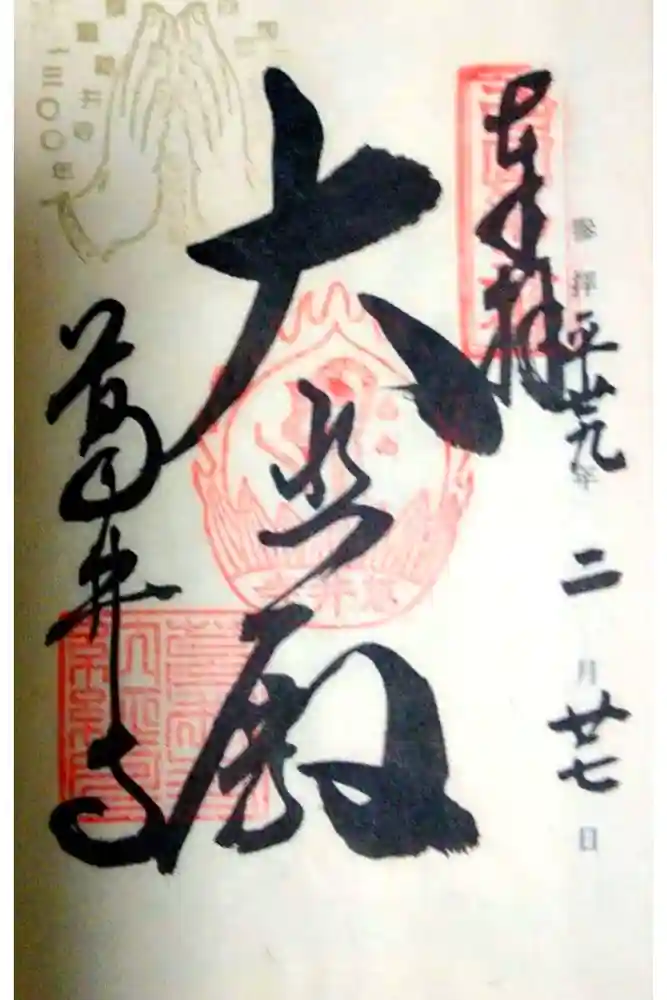 奉拝
參拝平廿九年 二月廿七日
大悲殿
葛井寺
井寺
一三〇〇年